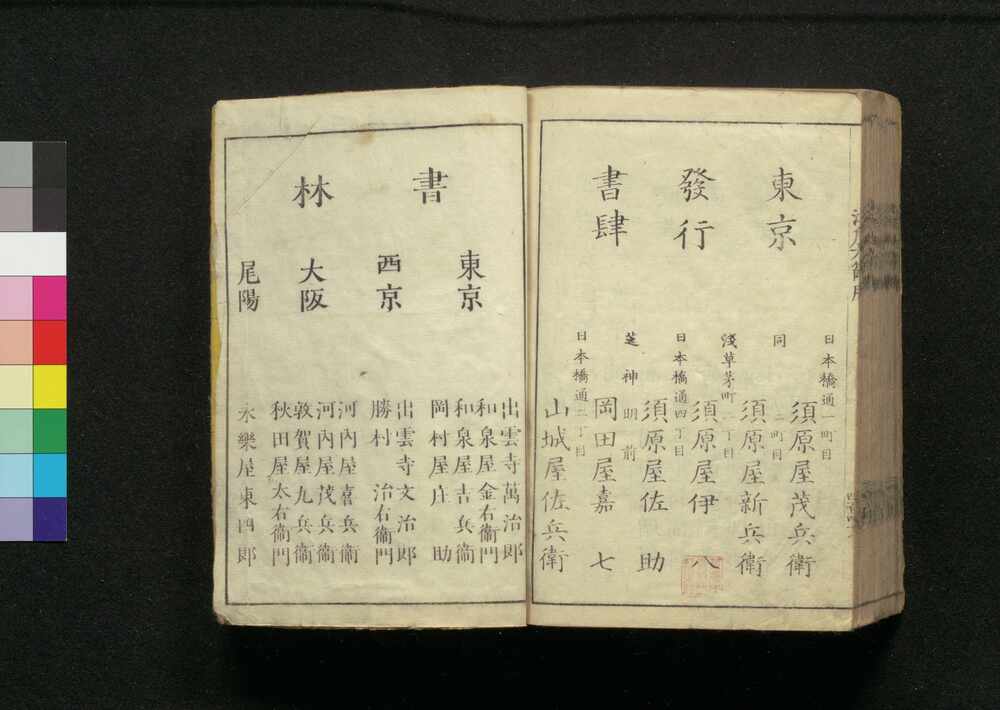 東京
發行
書肆
日本橋通一町目
須原屋茂兵衛
同二町目
須原屋新兵衛
淺草茅町二丁目
須原屋伊八
日本橋通四丁目
須原屋佐助
芝神明前
岡田屋嘉七
日本橋通二丁目
山城屋佐兵衛
書林
東京
出雲寺萬治郎
和泉屋金右衞門
和泉屋吉兵衞
岡村屋庄助
西京
出雲寺文治郎
勝村治右衞門
大阪
河內屋喜兵衞
河內屋茂兵衞
敦賀屋九兵衞
秋田屋太右衞門
尾陽
永樂屋東四郎